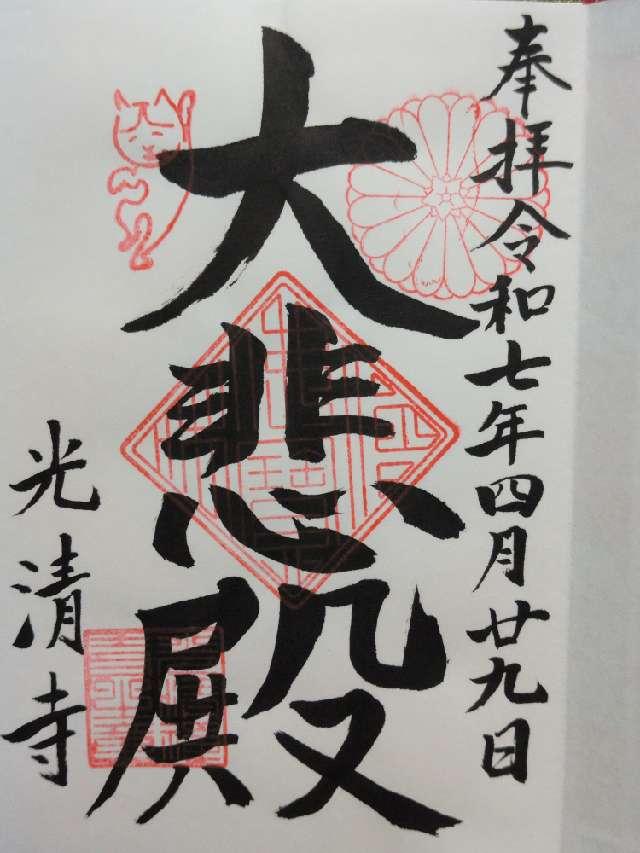 奉拝令和七年四月廿九日
大悲殿
光清寺